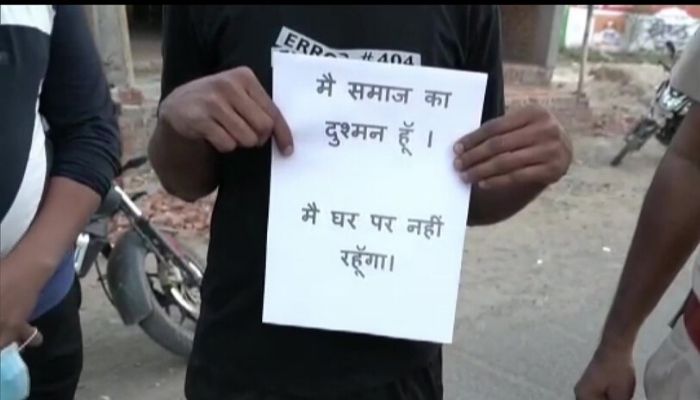 ERROR #404
मै समाज का
दुश्मन हूॅं ।
मै घर पर नहीं
रहूॅंगा।